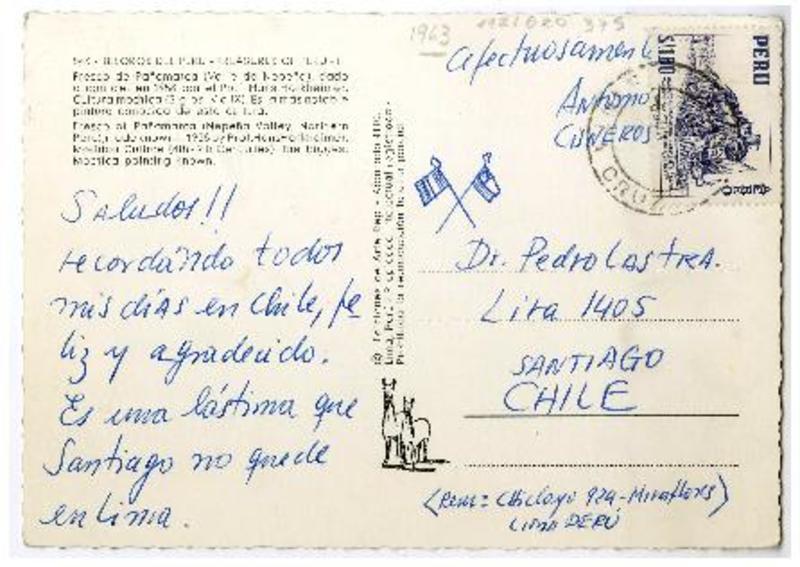 1963
TESOROS DEL PERU - TREASURES OF PERU
Fresco de Pañamarca (Valle de Nepeña), dado
a conocer en 1958 por el Prof. Hans Horkheimer.
Cultura mochica
Es la más notable
pintura conocida de esta cultura.
Fresco of Pañamarca (Nepeña Valley, Northern
Peru), made known 1958 by Prof. Hans Horkheimer.
Mochica Culture
the biggest
Mochica painting known.
Saludos!!
recordando todos
mis días en Chile, fe
liz y agradecido.
Es una lástima que
Santiago no quede
en Lima.
© Ediciones de Arte Rep
Lima, Perú
Afectuosamente
Antonio
CISNEROS
PERU
S/.1.80
Dr. Pedro Lastra.
Lira 1405
SANTIAGO
CHILE
(Rem: Chiclayo 924-Miraflores)
LIMA PERÚ